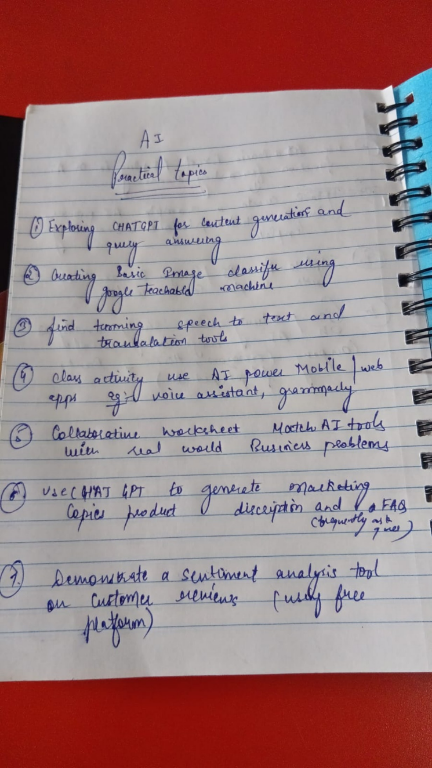 AI
Practical topics
① Exploring CHATGPT for content generation and
query answering
② Creating Basic Image classifier using
google teachable machine
③ find tooming speech to text and
translation tools
④ Class activity use AI power Mobile / web
apps eg:- voice assistant, grammarly
⑤ Collaborative worksheet Match AI tools
with real world Business problems
⑥ use CHAT GPT to generate marketing
Copies product discription and a FAQ
(frequently ask
ques)
⑦. Demonstrate a sentiment analysis tool
on customer reviews (using free
platform)